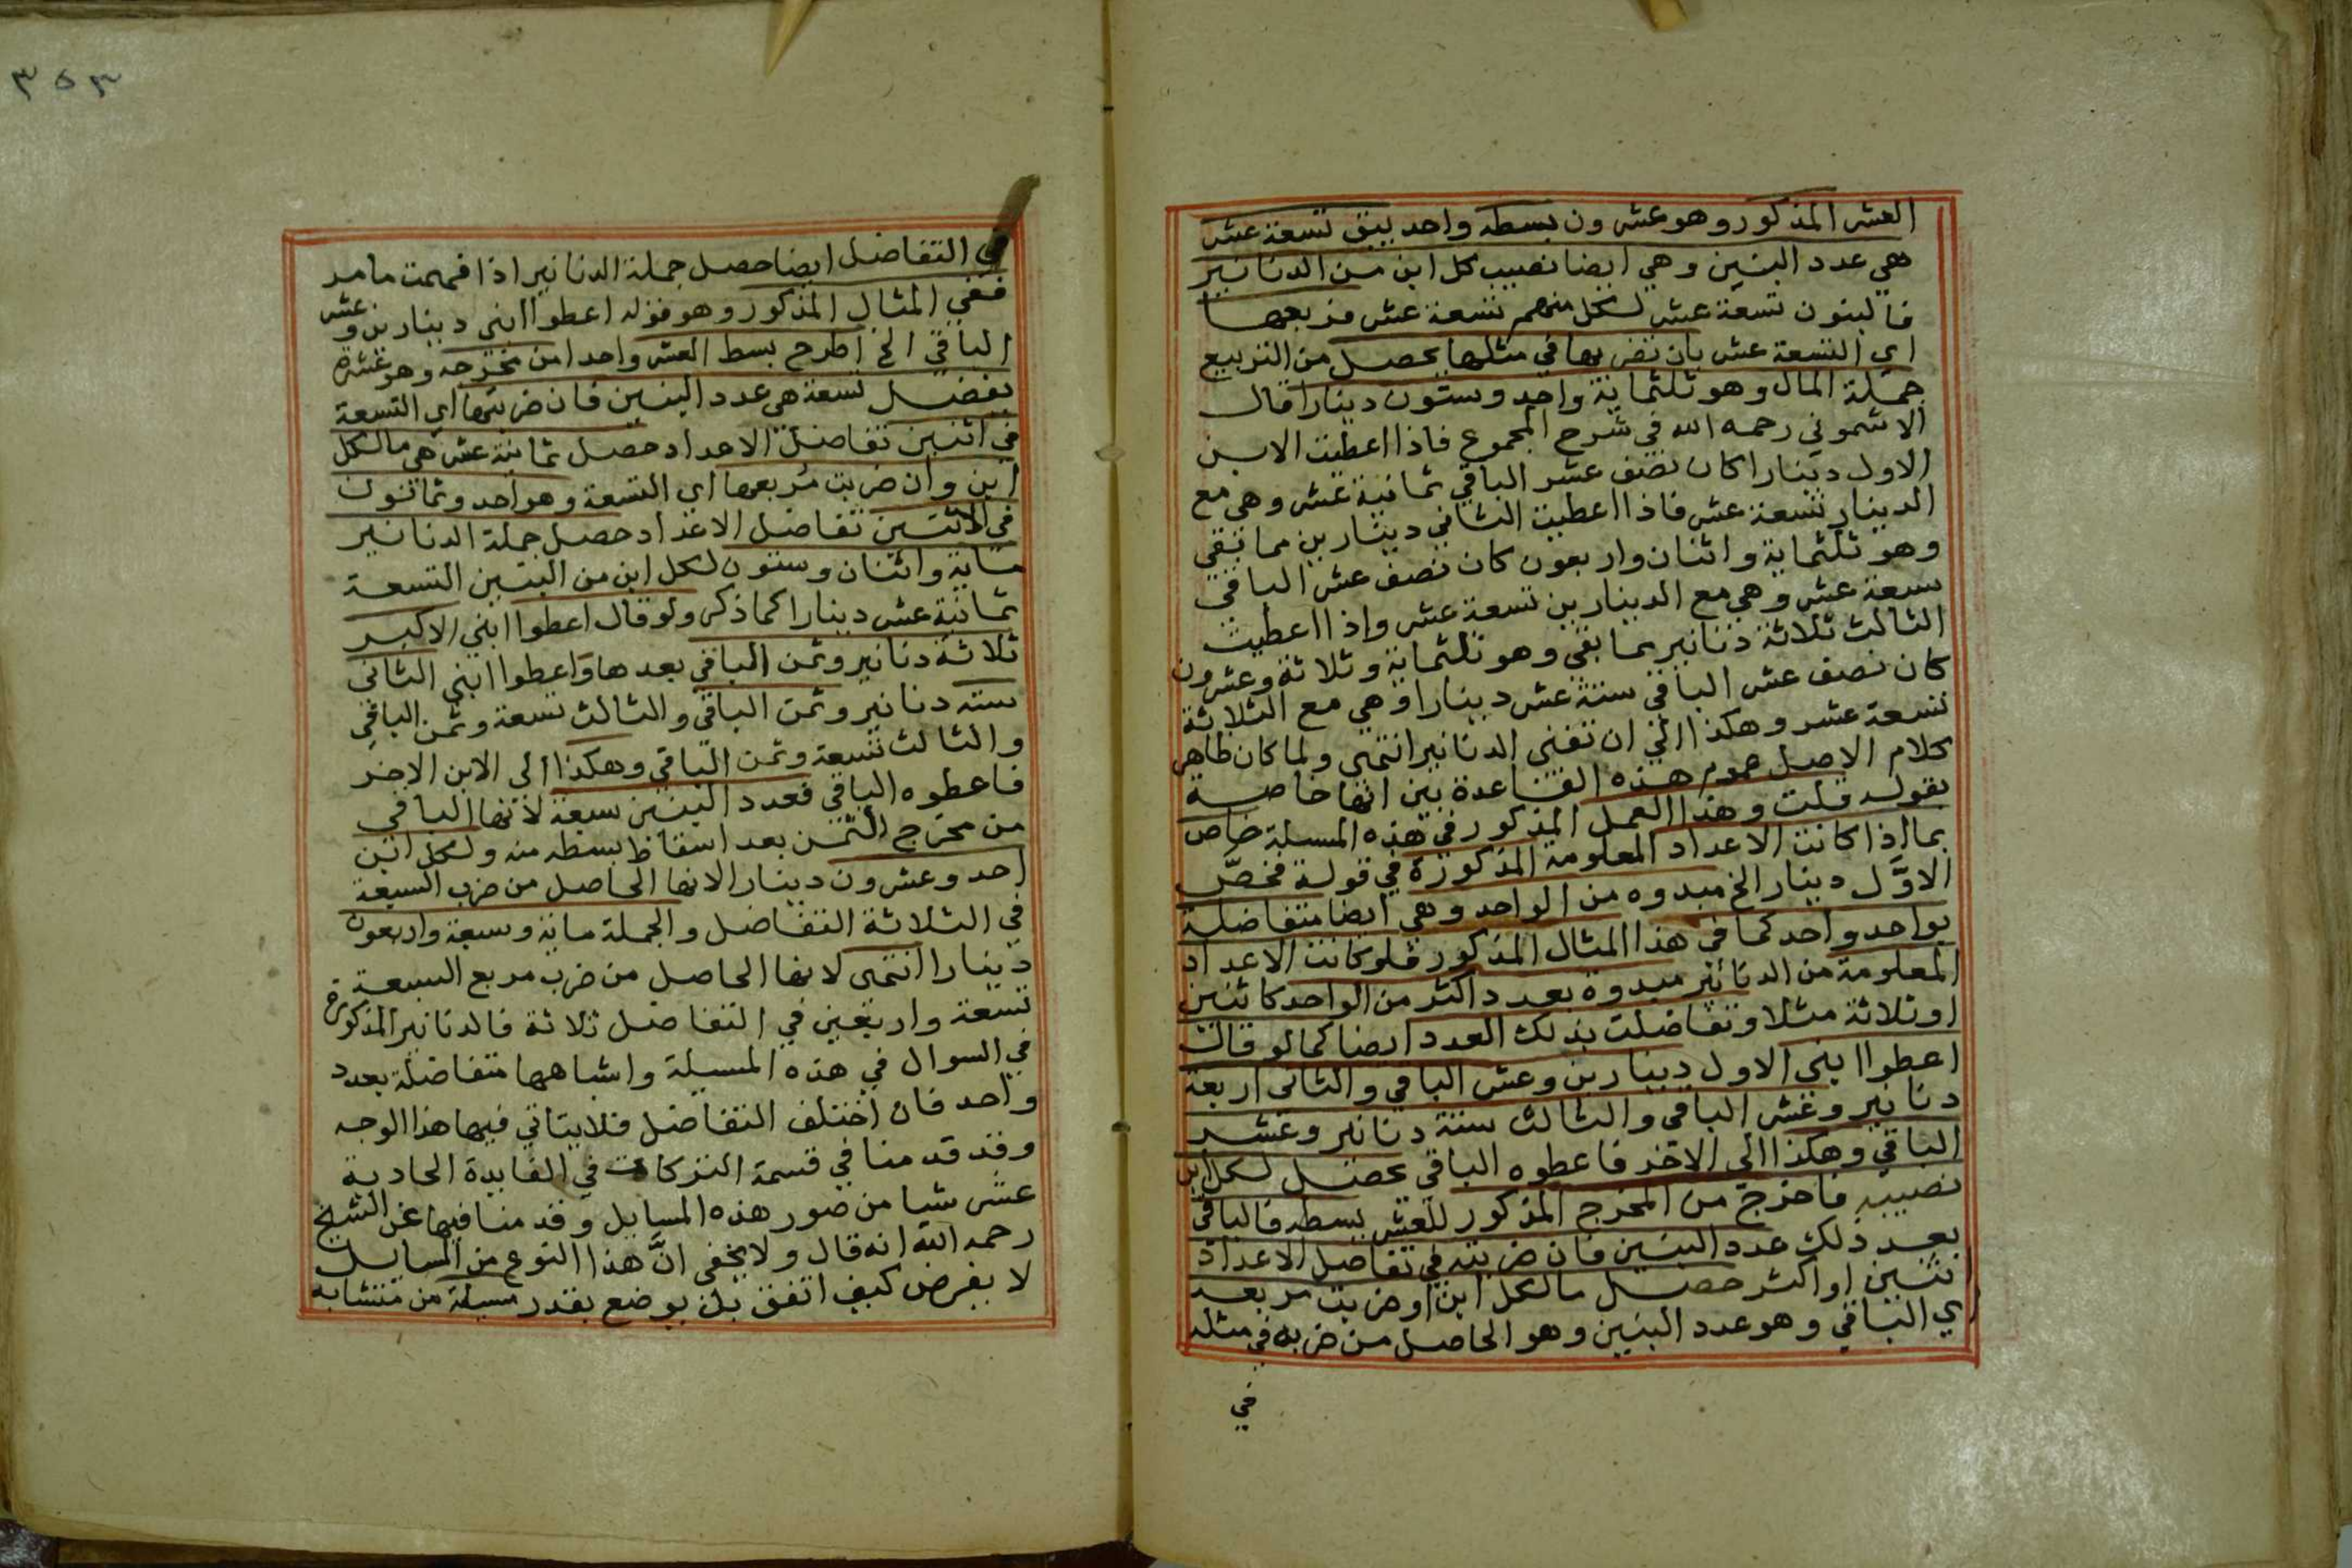 العشر المذكور وهو عشرون بسطه واحد يبق تسعة عشر
هي عدد البنين وهي ايضا نصيب كل ابن من الدنانير
فالبنون تسعة عشر لكل منهم تسعة عشر فربعها
اي التسعة عشر بان تضربها في مثلها يحصل من التربيع
جملة المال وهو ثلثماية واحد وستون دينارا قال
الاشموني رحمه الله في شرح المجموع فاذا اعطيت الابن
الاول دينارا كان نصف عشر الباقي ثمانية عشر وهي مع
الدينار تسعة عشر فاذا اعطيت الثاني دينارين مما بقي
وهو ثلثماية واثنان واربعون كان نصف عشر الباقي
سبعة عشر وهي مع الدينارين تسعة عشر واذا اعطيت
الثالث ثلاثة دنانير مما بقي وهو ثلثماية وثلاثة وعشرون
كان نصف عشر الباقي ستة عشر دينارا وهي مع الثلاثة
تسعة عشر وهكذا الي ان تفني الدنانير انتهى ولما كان ظاهر
كلام الاصل عموم هذه القاعدة بين انها خاصة
بقوله قلت وهذا العمل المذكور في هذه المسيلة خاص
بما اذا كانت الاعداد المعلومة المذكورة في قوله فخص
الاوَّل دينار الخ مبدوه من الواحد وهي ايضا متفاضلة
بواحد واحد كما في هذا المثال المذكور فلو كانت الاعداد
المعلومة من الدنانير مبدوة بعدد اكثر من الواحد كاثنين
او ثلاثة مثلا وتفاضلت بذلك العدد ايضا كما لو قال
اعطوا ابني الاول دينارين وعشر الباقي والثاني اربعة
دنانير وعشر الباقي والثالث ستة دنانير وعشر
الباقي وهكذا الي الاخر فاعطوه الباقي يحصل لكل ابن
نصيبه فاخرج من المخرج المذكور للعشر بسطه فالباقي
بعد ذلك عدد البنين فان ضربته في تفاضل الاعداد
نثنين او اكثر حصل مالكل ابن او ضربت مربعه
اي الباقي وهو عدد البنين وهو الحاصل من ضربه في مثله
في
٣٥٣
في التفاضل ايضا حصل جملة الدنانير اذا فهمت ما مر
ففي المثال المذكور وهو قوله اعطوا ابني دينارين وعشر
الباقي الخ اطرح بسط العشر واحدا من مخرجه وهو عشرة
يفضل تسعة هي عدد البنين فان ضربتها اي التسعة
في اثنين تفاضل الاعداد حصل ثمانية عشر هي مالكل
ابن وان ضربت مربعها اي التسعة وهو احد وثمانون
في الاثنين تفاضل الاعداد حصل جملة الدنانير
ماية واثنان وستون لكل ابن من البنين التسعة
ثمانية عشر دينارا كما ذكر ولو قال اعطوا ابني الاكبر
ثلاثة دنانير وثمن الباقي بعدها واعطوا ابني الثاني
ستة دنانير وثمن الباقي والثالث تسعة وثمن الباقي
والثالث تسعة وثمن الباقي وهكذا الي الابن الاخر
فاعطوه الباقي فعدد البنين سبعة لانها الباقي
من مخرج الثمن بعد اسقاط بسطه منه ولكل ابن
احد وعشرون دينارا لانها الحاصل من ضرب السبعة
في الثلاثة التفاضل والجملة ماية وسبعة واربعون
دينارا انتهى لانها الحاصل من ضرب مربع السبعة
تسعة واربعين في التفاضل ثلاثة فالدنانير المذكورة
في السوال في هذه المسيلة واشباهها متفاضلة بعدد
واحد فان اختلف التفاضل فلا يتاتي فيها هذا الوجه
وقد قدمنا في قسمة التركات في الفايدة الحادية
عشر شيا من صور هذه المسايل وقدمنا فيها عن الشيخ
رحمه الله انه قال ولا يخفى انَّ هذا النوع من المسايل
لا يفرض كيف اتفق بل يوضع بقدر مسيلة من متشابه